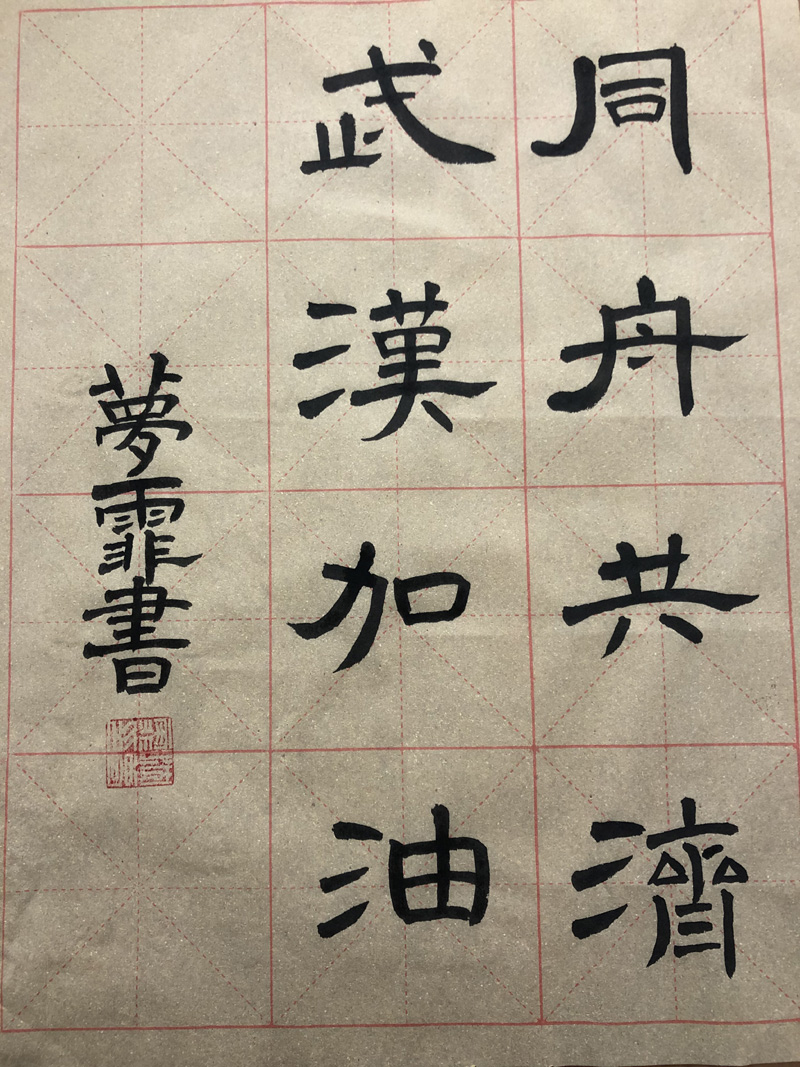 同舟共濟
武漢加油
夢霏書